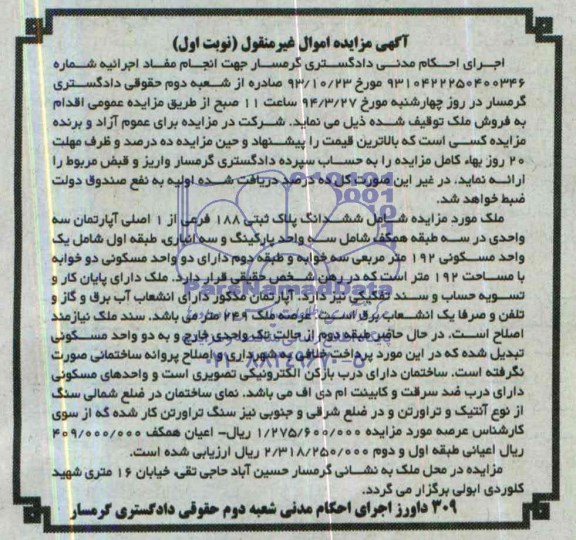 آگهی مزایده اموال غیرمنقول (نوبت اول)
اجرای احکام مدنی دادگستری گرمسار جهت انجام مفاد اجرائیه شماره
۹۳۱۰۴۲۲۲۵۰۴۰۰۳۴۶ مورخ ۹۳/۱۰/۲۳ صادره از شعبه دوم حقوقی دادگستری
گرمسار در روز چهارشنبه مورخ ۹۴/۳/۲۷ ساعت ۱۱ صبح از طریق مزایده عمومی اقدام
به فروش ملک توقیف شده ذیل می نماید. شرکت در مزایده برای عموم آزاد و برنده
مزایده کسی است که بالاترین قیمت را پیشنهاد و حین مزایده ده درصد و ظرف مهلت
۲۰ روز بهاء کامل مزایده را به حساب سپرده دادگستری گرمسار واریز و قبض مربوط را
ارائه نماید. در غیر این صورت کل ده درصد دریافت شده اولیه به نفع صندوق دولت
ضبط خواهد شد.
ملک مورد مزایده شامل ششدانگ پلاک ثبتی ۱۸۸ فرعی از ۱ اصلی آپارتمان سه
واحدی در سه طبقه همکف شامل سه واحد پارکینگ و سه انباری، طبقه اول شامل یک
واحد مسکونی ۱۹۲ متر مربعی سه خوابه و طبقه دوم دارای دو واحد مسکونی دو خوابه
با مساحت ۱۹۲ متر است که در رهن شخص حقیقی قرار دارد. ملک دارای پایان کار و
تسویه حساب و سند تفکیکی نیز دارد. آپارتمان مذکور دارای انشعاب آب برق و گاز و
تلفن و صرفا یک انشعاب برق است. عرصه ملک ۲۴۹ متر می باشد. سند ملک نیازمند
اصلاح است. در حال حاضر طبقه دوم از حالت تک واحدی خارج و به دو واحد مسکونی
تبدیل شده که در این مورد پرداخت خلافی به شهرداری و اصلاح پروانه ساختمانی صورت
نگرفته است. ساختمان دارای درب بازکن الکترونیکی تصویری است و واحدهای مسکونی
دارای درب ضد سرقت و کابینت ام دی اف می باشد. نمای ساختمان در ضلع شمالی سنگ
از نوع آنتیک و تراورتن و در ضلع شرقی و جنوبی نیز سنگ تراورتن کار شده که از سوی
کارشناس عرصه مورد مزایده ۱/۲۷۵/۶۰۰/۰۰۰ ریال- اعیان همکف ۴۰۹/۰۰۰/۰۰۰
ریال اعیانی طبقه اول و دوم ۲/۳۱۸/۲۵۰/۰۰۰ ریال ارزیابی شده است.
مزایده در محل ملک به نشانی گرمسار حسین آباد حاجی تقی، خیابان ۱۶ متری شهید
کلوردی ابولی برگزار می گردد.
۳۰۹ داورز اجرای احکام مدنی شعبه دوم حقوقی دادگستری گرمسار
ParsNamadData
۰۲۱-۸۸۳۴۹۶۷۰-۵